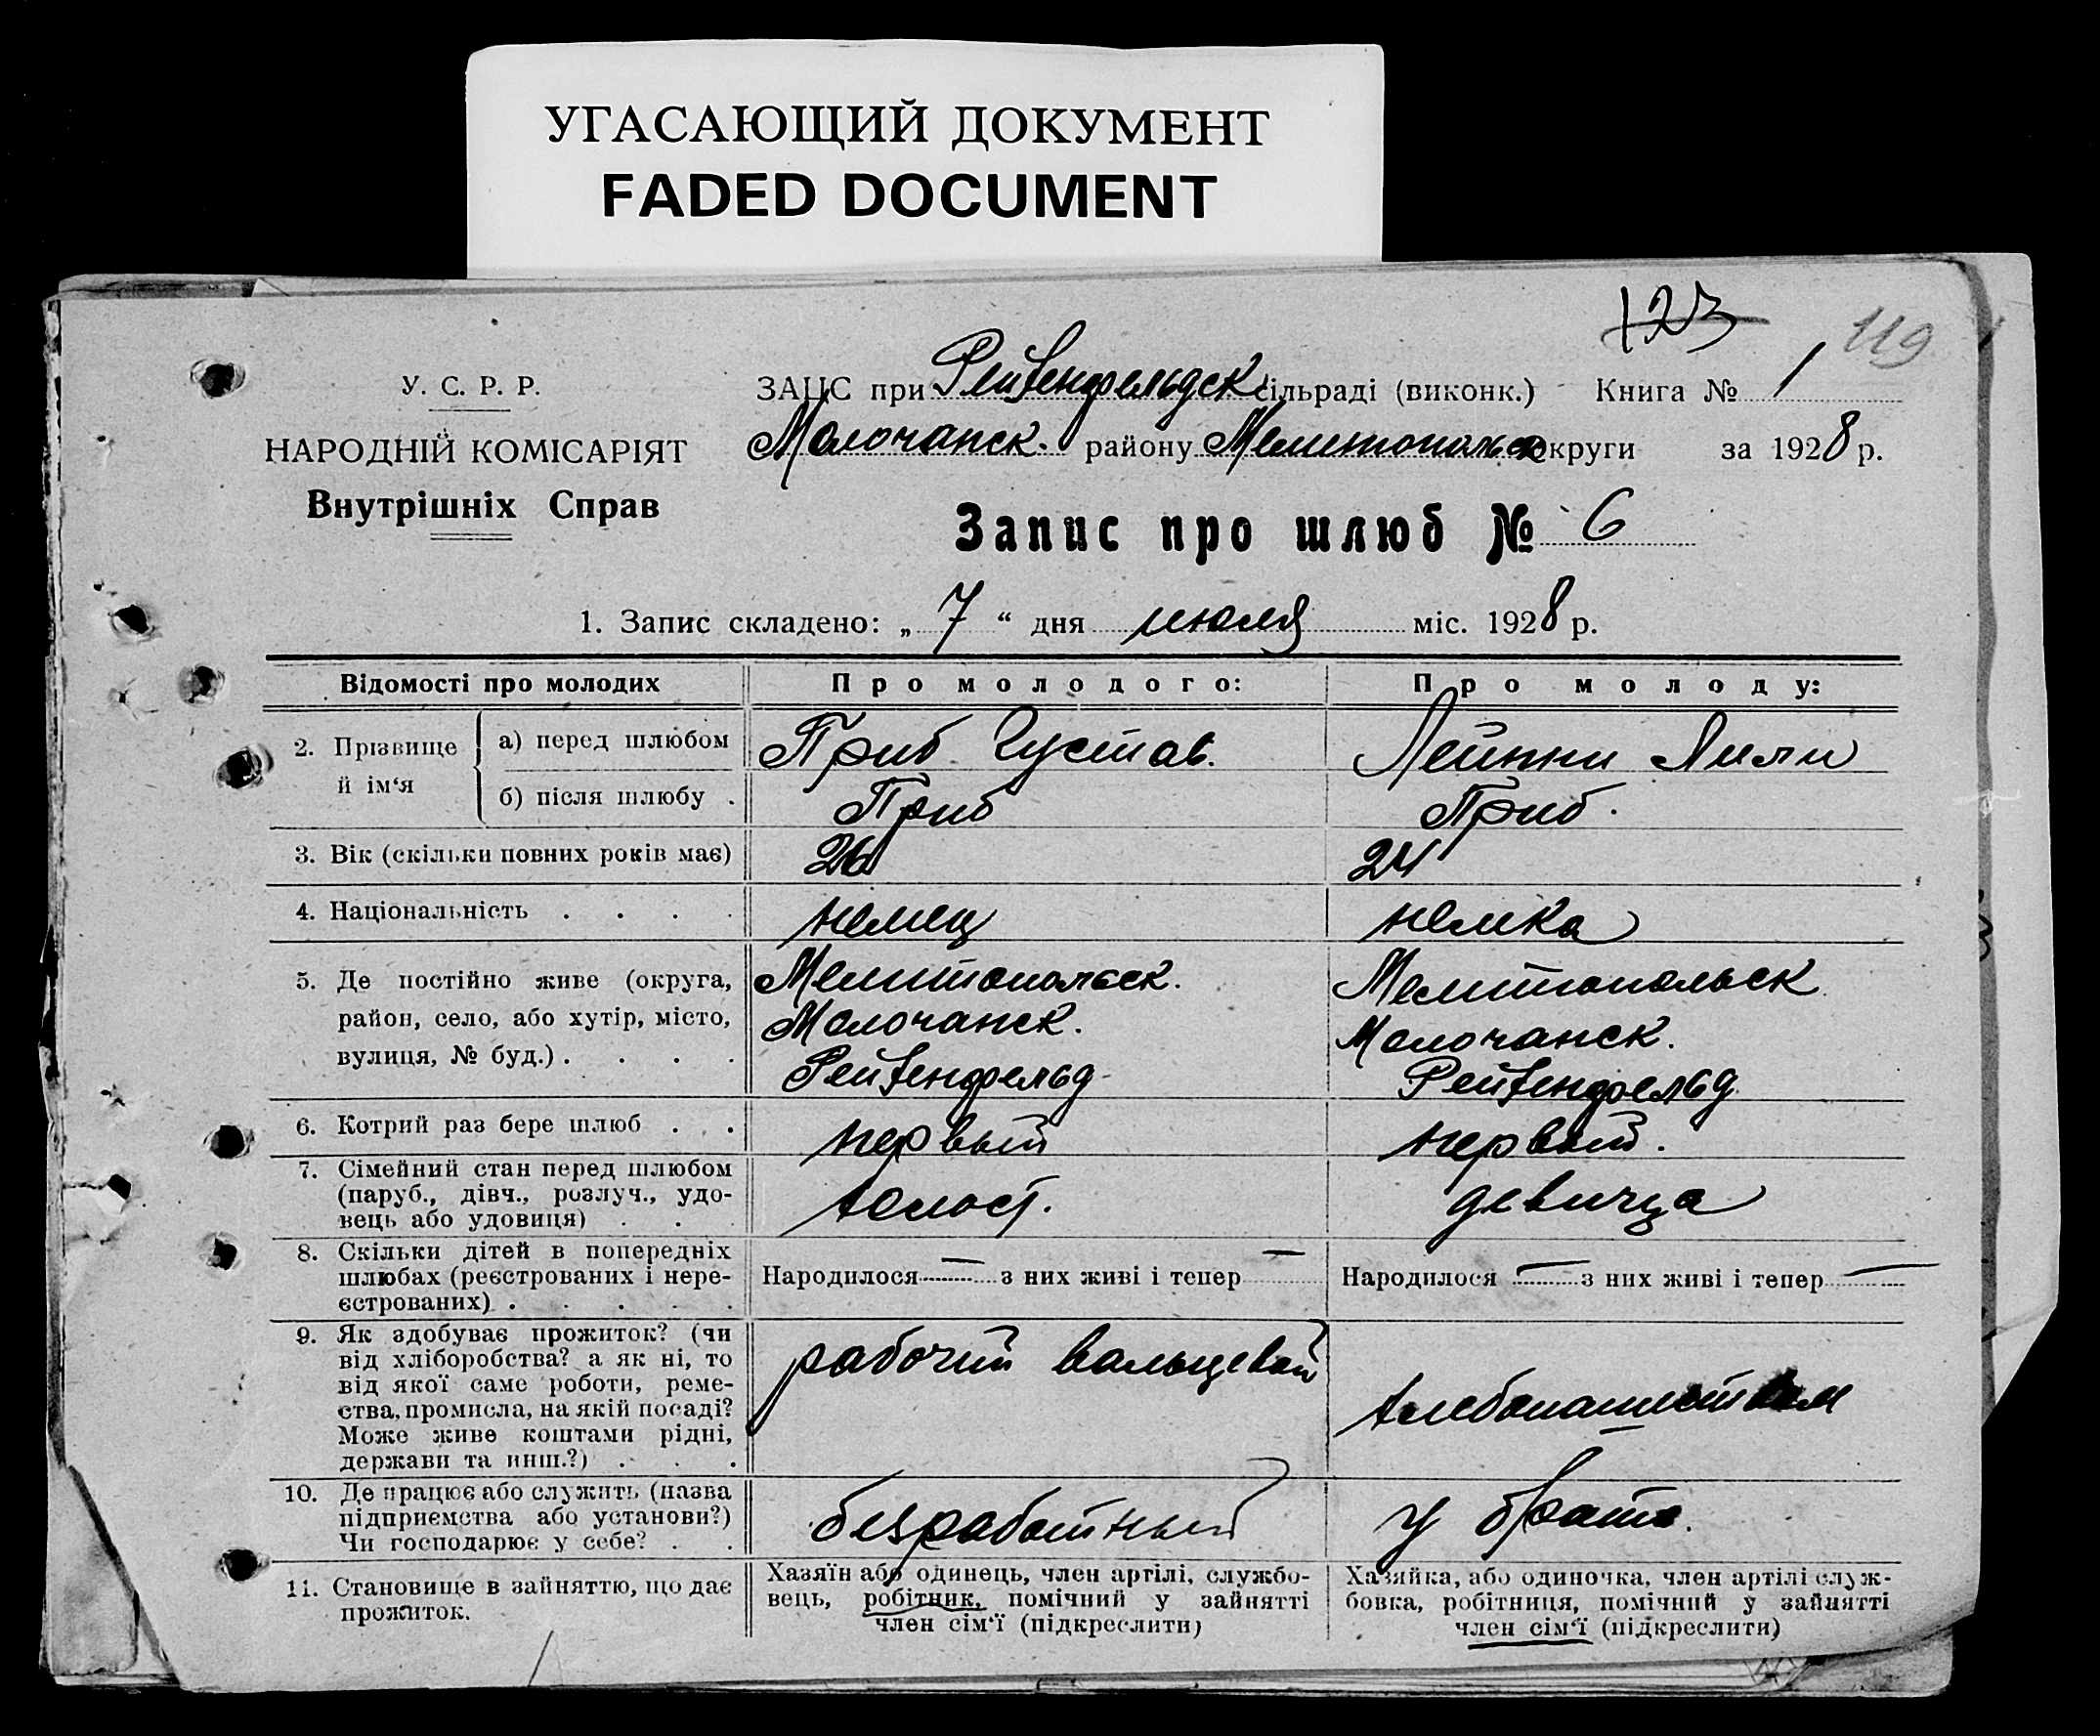 УГАСАЮЩИЙ ДОКУМЕНТ
FADED DOCUMENT
123
119
У. С. Р. Р.
НАРОДНІЙ КОМІСАРІЯТ
Внутрішніх Справ
ЗАЦС при Рейхенфельдск сільраді (виконк.) Книга № 1
Молочанск. району Мелитопольск округи за 1928 р.
Запис про шлюб № 6
1. Запис складено: „ 7 “ дня июля міс. 1928 р.
Відомості про молодих
Про молодого:
Про молоду:
2. Прізвище й ім‘я
а) перед шлюбом
Гриб Густав.
Лейпни Лили
б) після шлюбу .
Гриб
Гриб.
3. Вік (скільки повних років має)
26
24
4. Національність . . . .
немец
немка
5. Де постійно живе (округа,
район, село, або хутір, місто,
вулиця, № буд.) . . . .
Мелитопольск.
Молочанск.
Рейхенфельд
Мелитопольск
Молочанск.
Рейхенфельд
6. Котрий раз бере шлюб . .
первый
первый.
7. Сімейний стан перед шлюбом
(паруб., дівч., розлуч., удо-
вець або удовиця) . .
холост.
девица
8. Скільки дітей в попередніх
шлюбах (реєстрованих і нере-
єстрованих) . . . . .
Народилося — з них живі і тепер —
Народилося — з них живі і тепер —
9. Як здобуває прожиток? (чи
від хліборобства? а як ні, то
від якої саме роботи, реме-
ства, промисла, на якій посаді?
Може живе коштами рідні,
держави та инш.?) . . .
рабочий вальцевой
хлебопашеством
10. Де працює або служить (назва
підприємства або установи?)
Чи господарює у себе? . .
безработный
у брата.
11. Становище в зайняттю, що дає
прожиток.
Хазяїн або одинець, член артілі, службо-
вець, робітник, помічний у зайнятті
член сім‘ї (підкреслити)
Хазяйка, або одиночка, член артілі служ-
бовка, робітниця, помічний у зайнятті
член сім‘ї (підкреслити)